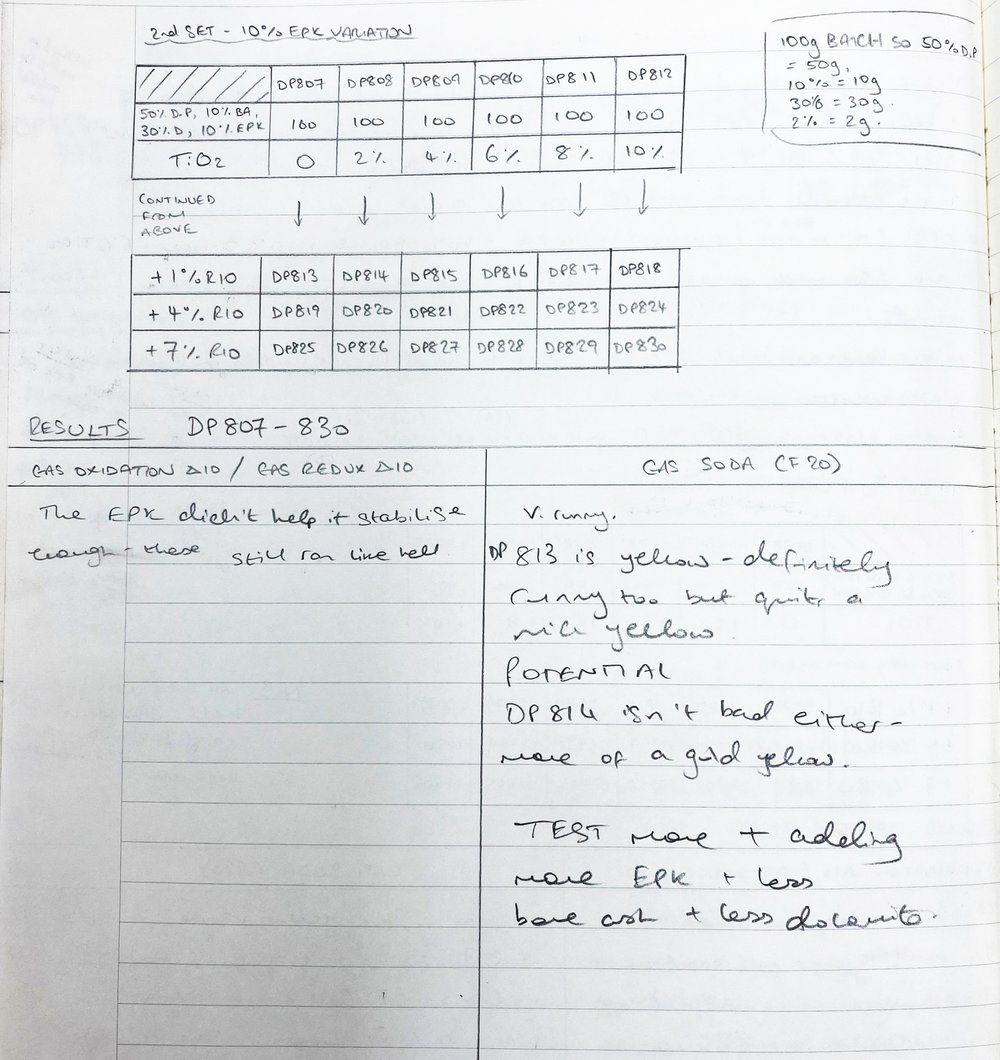 2nd SET - 10% EPK VARIATION
100g BATCH SO 50% D.P
= 50g,
10% = 10g
30% = 30g.
2% = 2g.
DP807 DP808 DP809 DP810 DP811 DP812
50% D.P, 10% BA, 30% D, 10% EPK 100 100 100 100 100 100
TiO2 0 2% 4% 6% 8% 10%
CONTINUED
FROM
ABOVE
+ 1% R10 DP813 DP814 DP815 DP816 DP817 DP818
+ 4% R10 DP819 DP820 DP821 DP822 DP823 DP824
+ 7% R10 DP825 DP826 DP827 DP828 DP829 DP830
RESULTS DP807-830
GAS OXIDATION Δ10 / GAS REDUX Δ10
The EPK didn't help it stabilise
though - these still ran like hell
GAS SODA (F20)
V. runny.
DP813 is yellow - definitely
runny too but quite a
nice yellow.
POTENTIAL
DP814 isn't bad either -
more of a gold yellow.
TEST more + adding
more EPK + less
bone ash + less dolomite.